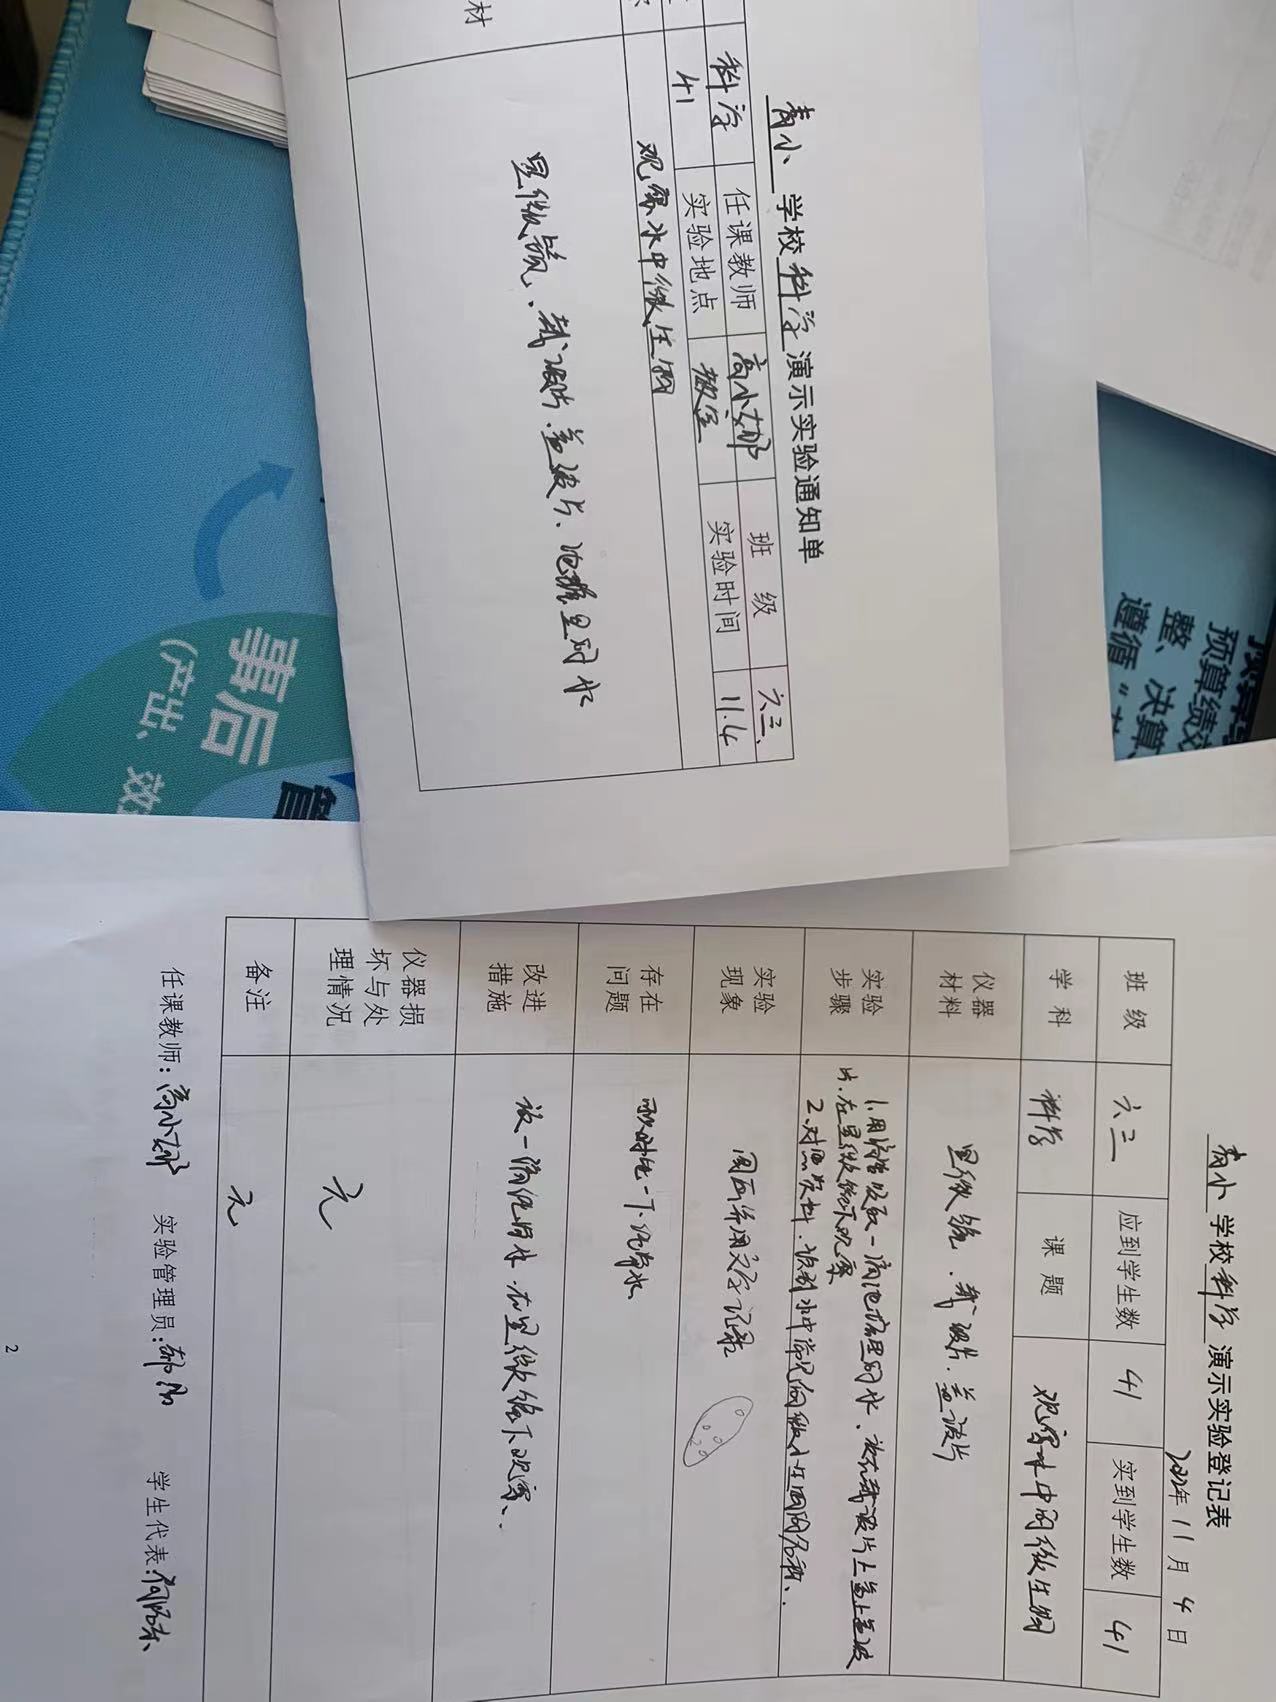 高小 学校 科学 演示实验通知单
科学 任课教师 高小娜 班 级 六三
41 实验地点 教室 实验时间 11.4
观察水中微生物
材
显微镜、载玻片、盖玻片、池塘里的水
高小 学校 科学 演示实验登记表
2022年 11月 4日
班 级 六三 应到学生数 41 实到学生数 41
学 科 科学 课 题 观察水中的微生物
仪器材料 显微镜、载玻片、盖玻片
实验步骤 1.用滴管吸取一滴池塘里的水、放在载玻片上盖上盖玻
片、在显微镜下观察
2.对照资料、识别水中常见的微小生物的名称、
实验现象 图画并用文字记录
存在问题
改进措施 放一滴池塘水、在显微镜下观察、
仪器损坏与处理情况 无
备注 无
任课教师: 高小娜 实验管理员: 学生代表:
2
事后
(产出、效
管
预算绩效
整、决算
遵循“